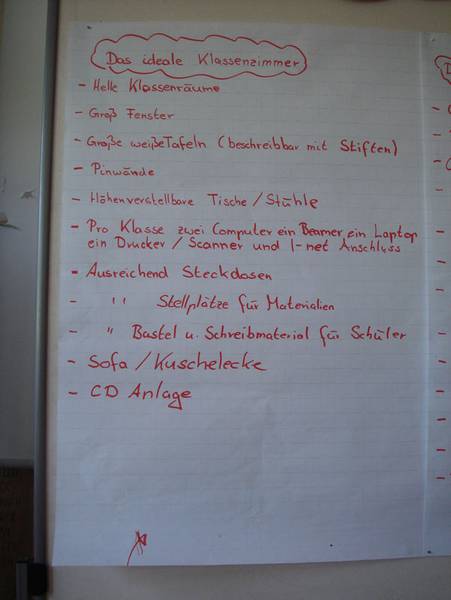 Das ideale Klassenzimmer
- Helle Klassenräume
- Groß Fenster
- Große weiße Tafeln (beschreibbar mit Stiften)
- Pinwände
- Höhenverstellbare Tische / Stühle
- Pro Klasse zwei Computer ein Beamer, ein Laptop
ein Drucker / Scanner und I-net Anschluss
- Ausreichend Steckdosen
- " Stellplätze für Materialien
- " Bastel u. Schreibmaterial für Schüler
- Sofa / Kuschelecke
- CD Anlage